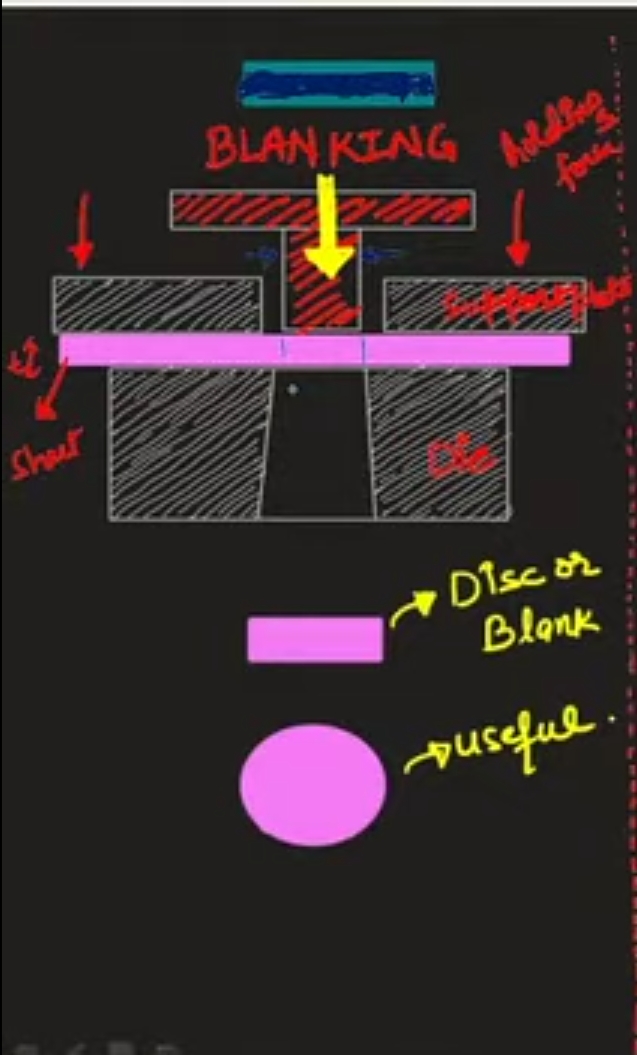 BLANKING
holding
force
Support plate
t
Sheet
Die
Disc or
Blank
useful.